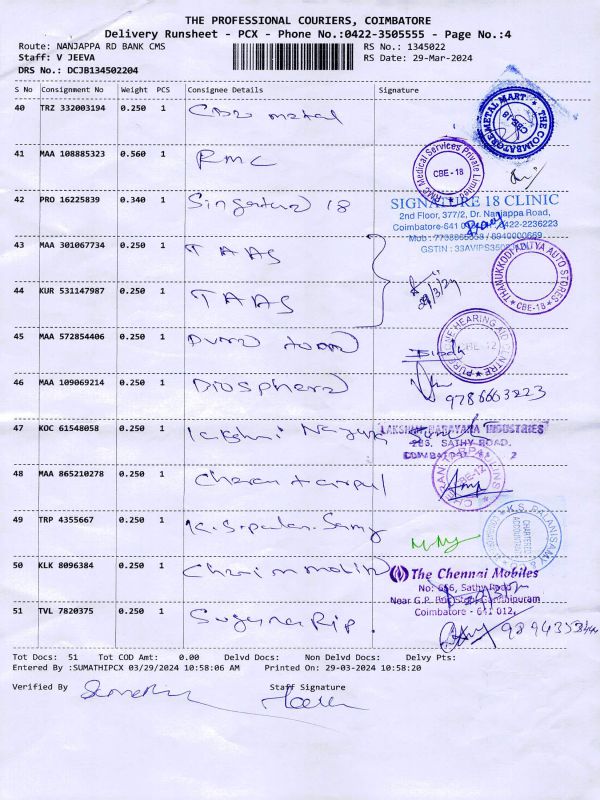 THE PROFESSIONAL COURIERS, COIMBATORE
Delivery Runsheet - PCX - Phone No.:0422-3505555 - Page No.:4
Route: NANJAPPA RD BANK CMS
RS No.: 1345022
Staff: V JEEVA
RS Date: 29-Mar-2024
DRS No.: DCJB134502204
S No Consignment No Weight PCS Consignee Details Signature
40 TRZ 332003194 0.250 1 CBE metal
THE COIMBATORE METAL MART CBE-18
41 MAA 108885323 0.560 1 RMC
RMC Medical Services Private Limited CBE - 18
42 PRO 16225839 0.340 1 Singature 18
SIGNATURE 18 CLINIC
2nd Floor, 377/2, Dr. Nanjappa Road,
Coimbatore-641 0422-2236223
Mob : / 8940000669
GSTIN : 33AVIPS
43 MAA 301067734 0.250 1 TAAS
THANUKKODI ADITYA AUTO STORES CBE-18
44 KUR 531147987 0.250 1 TAAS
29/3/24
45 MAA 572854406 0.250 1
PURE TONE HEARING AID CENTRE CBE-12
46 MAA 109069214 0.250 1 Diosphere
9786663223
47 KOC 61548058 0.250 1 lakshmi Narayana
LAKSHMI NARAYANA INDUSTRIES
SATHY ROAD.
48 MAA 865210278 0.250 1 Charan tarpul
CBE-12
49 TRP 4355667 0.250 1
K.S. PALANISAMY CHARTERED ACCOUNTANT
50 KLK 8096384 0.250 1 Chennai mobile
The Chennai Mobiles
No: 666, Sathy Road
Near G.P. Bus Stop, Gandhipuram
Coimbatore - 641 012.
51 TVL 7820375 0.250 1 Suguna Rip.
Tot Docs: 51 Tot COD Amt: 0.00 Delvd Docs: Non Delvd Docs: Delvy Pts:
Entered By :SUMATHIPCX 03/29/2024 10:58:06 AM Printed On: 29-03-2024 10:58:20
Verified By Staff Signature